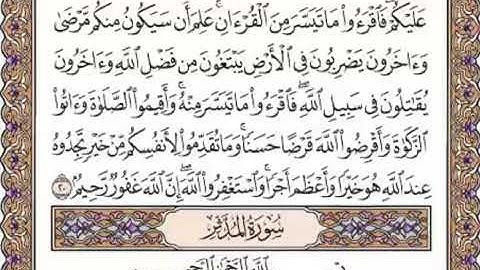 عَلَيْكُمْ فَٱقْرَءُوا۟ مَا تَيَسَّرَ مِنَ ٱلْقُرْءَانِ ۚ عَلِمَ أَن سَيَكُونُ مِنكُم مَّرْضَىٰ
وَءَاخَرُونَ يَضْرِبُونَ فِى ٱلْأَرْضِ يَبْتَغُونَ مِن فَضْلِ ٱللَّهِ وَءَاخَرُونَ
يُقَـٰتِلُونَ فِى سَبِيلِ ٱللَّهِ ۖ فَٱقْرَءُوا۟ مَا تَيَسَّرَ مِنْهُ ۚ وَأَقِيمُوا۟ ٱلصَّلَوٰةَ وَءَاتُوا۟
ٱلزَّكَوٰةَ وَأَقْرِضُوا۟ ٱللَّهَ قَرْضًا حَسَنًا ۚ وَمَا تُقَدِّمُوا۟ لِأَنفُسِكُم مِّنْ خَيْرٍ تَجِدُوهُ
عِندَ ٱللَّهِ هُوَ خَيْرًا وَأَعْظَمَ أَجْرًا ۚ وَٱسْتَغْفِرُوا۟ ٱللَّهَ ۖ إِنَّ ٱللَّهَ غَفُورٌ رَّحِيمٌۢ ٢٠
سُورَةُ الْمُدَّثِّرِ
ٱللَّهِ ٱلرَّحْمَـٰنِ ٱلرَّحِيمِ